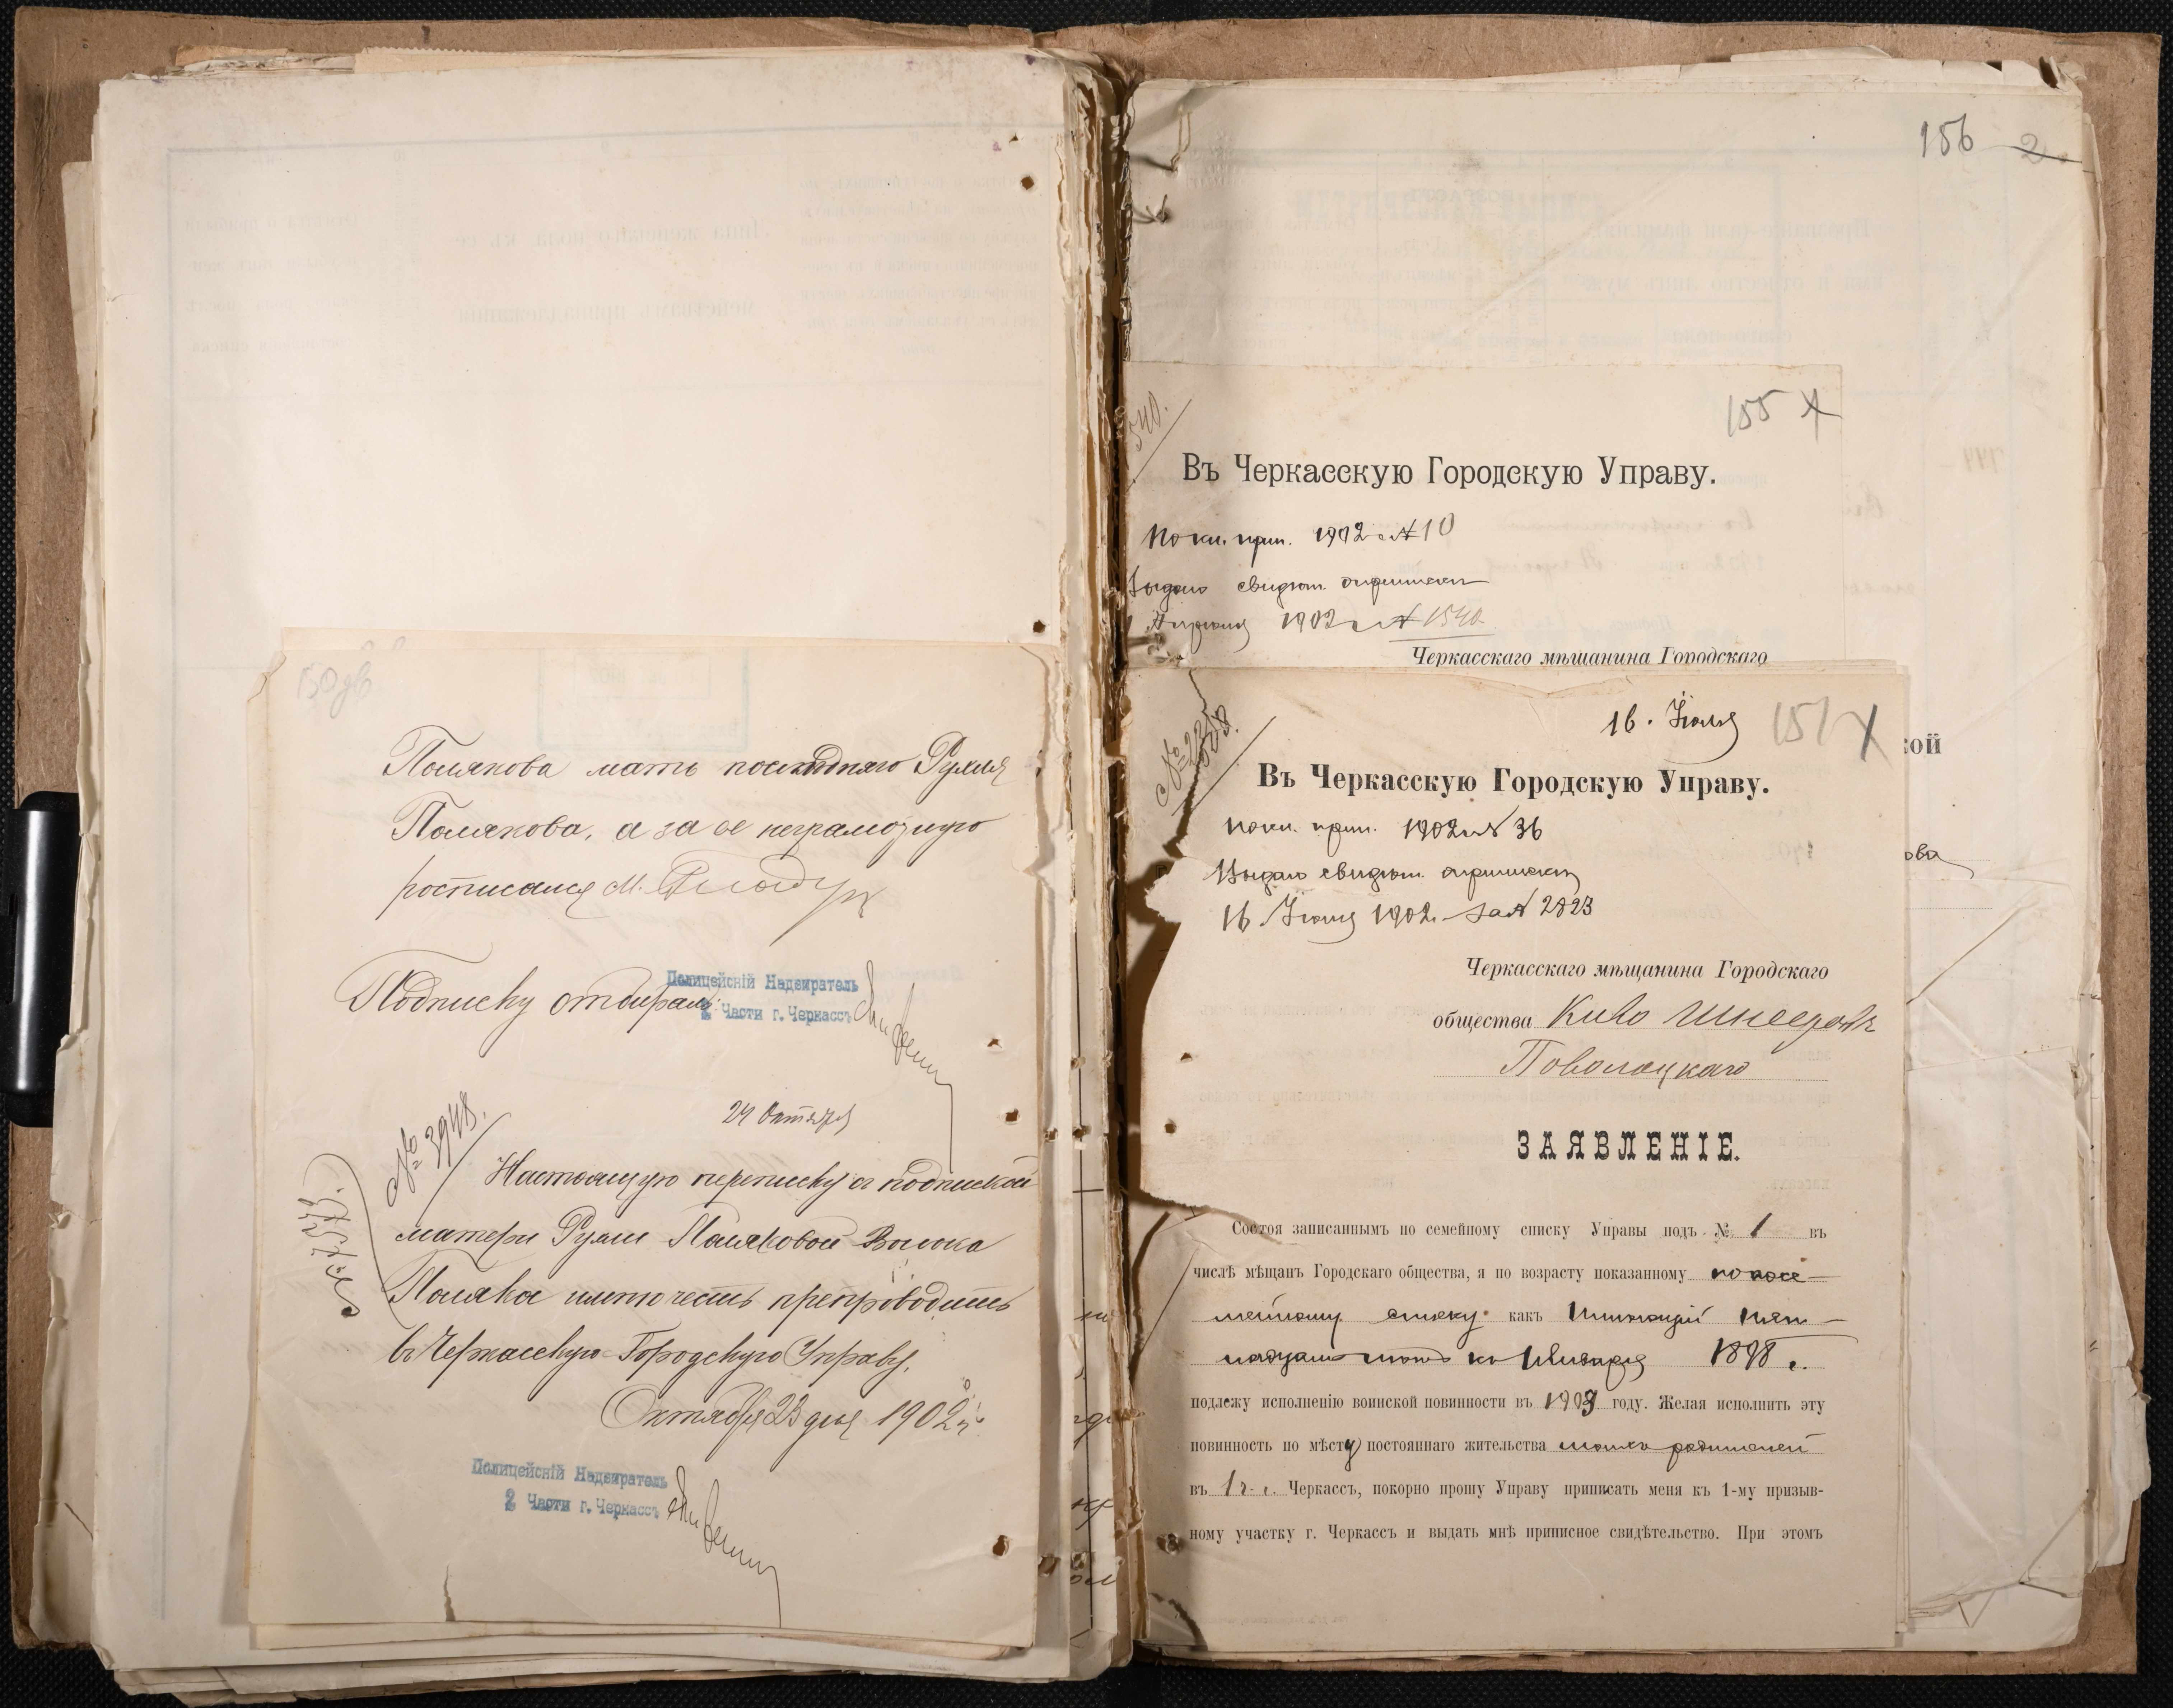 150 об
Полякова мать последняго Рухля
Полякова, а за ее неграмотную
росписался М.
Подписку отбиралъ:
Полицейскій Надзиратель
2 Части г. Черкассъ
24 Октября
№ 3948.
Настоящую переписку съ подпиской
матери Рухли Поляковой Волока
Поляка имѣю честь препроводить
въ Черкасскую Городскую Управу.
Октября 23 дня 1902 г.
Полицейскій Надзиратель
2 Части г. Черкассъ
156 2
155
540.
Въ Черкасскую Городскую Управу.
По кн. прип. 1902 г. № 10
Выдано свидѣт. о припискѣ
Апрѣля 1902 г. № 1540.
Черкасскаго мѣщанина Городскаго
кой
ова
16. Іюля 151
Въ Черкасскую Городскую Управу.
По кн. прип. 1902 г. № 36
Выдано свидѣт. о припискѣ
16 Іюля 1902 г. за № 2823
Черкасскаго мѣщанина Городскаго
общества Киво Шнеера
Поволоцкаго
ЗАЯВЛЕНІЕ.
Состоя записаннымъ по семейному списку Управы подъ № 1 въ
числѣ мѣщанъ Городскаго общества, я по возрасту показанному по посе-
мейному списку какъ имѣющій пят-
надцать лѣтъ къ 1 Января 1898 г.
подлежу исполненію воинской повинности въ 1903 году. Желая исполнить эту
повинность по мѣсту постояннаго жительства моихъ родителей
въ г. Черкассъ, покорно прошу Управу приписать меня къ 1-му призыв-
ному участку г. Черкассъ и выдать мнѣ приписное свидѣтельство. При этомъ